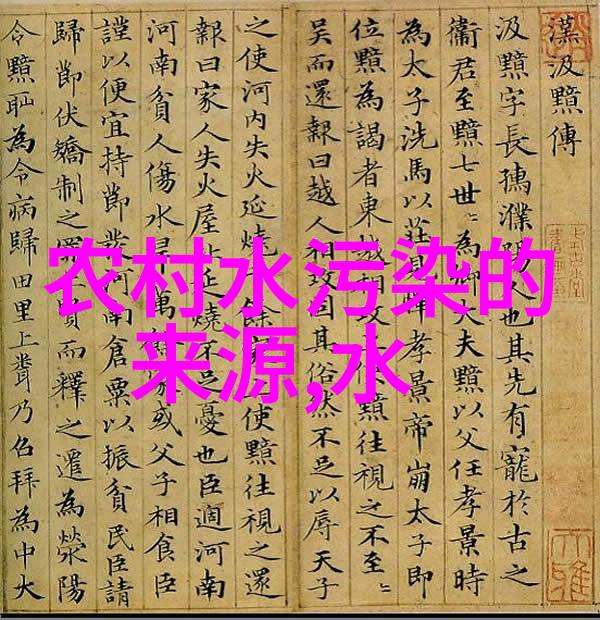 漢汲黯傳
汲黯字長孺濮陽人也其先有寵於古之
衛君至黯七世〻為卿大夫黯以父任孝景時
為太子洗馬以莊見憚孝景帝崩太子即
位黯為謁者東越相攻黯往視之不至〻
吳而還報曰越人相攻固其俗然不足以辱天子
之使河内失火延燒餘上使黯往視之還
報曰家人失火屋比延燒不足憂也臣適河南
河南貧人傷水旱萬家或父子相食臣
謹以便宜持節發河南倉粟以振貧民臣請
歸節伏矯制之上賢而釋之遷為滎陽
令黯恥為令病歸田里上乃召拜為中大
农村水污染的
来源,水